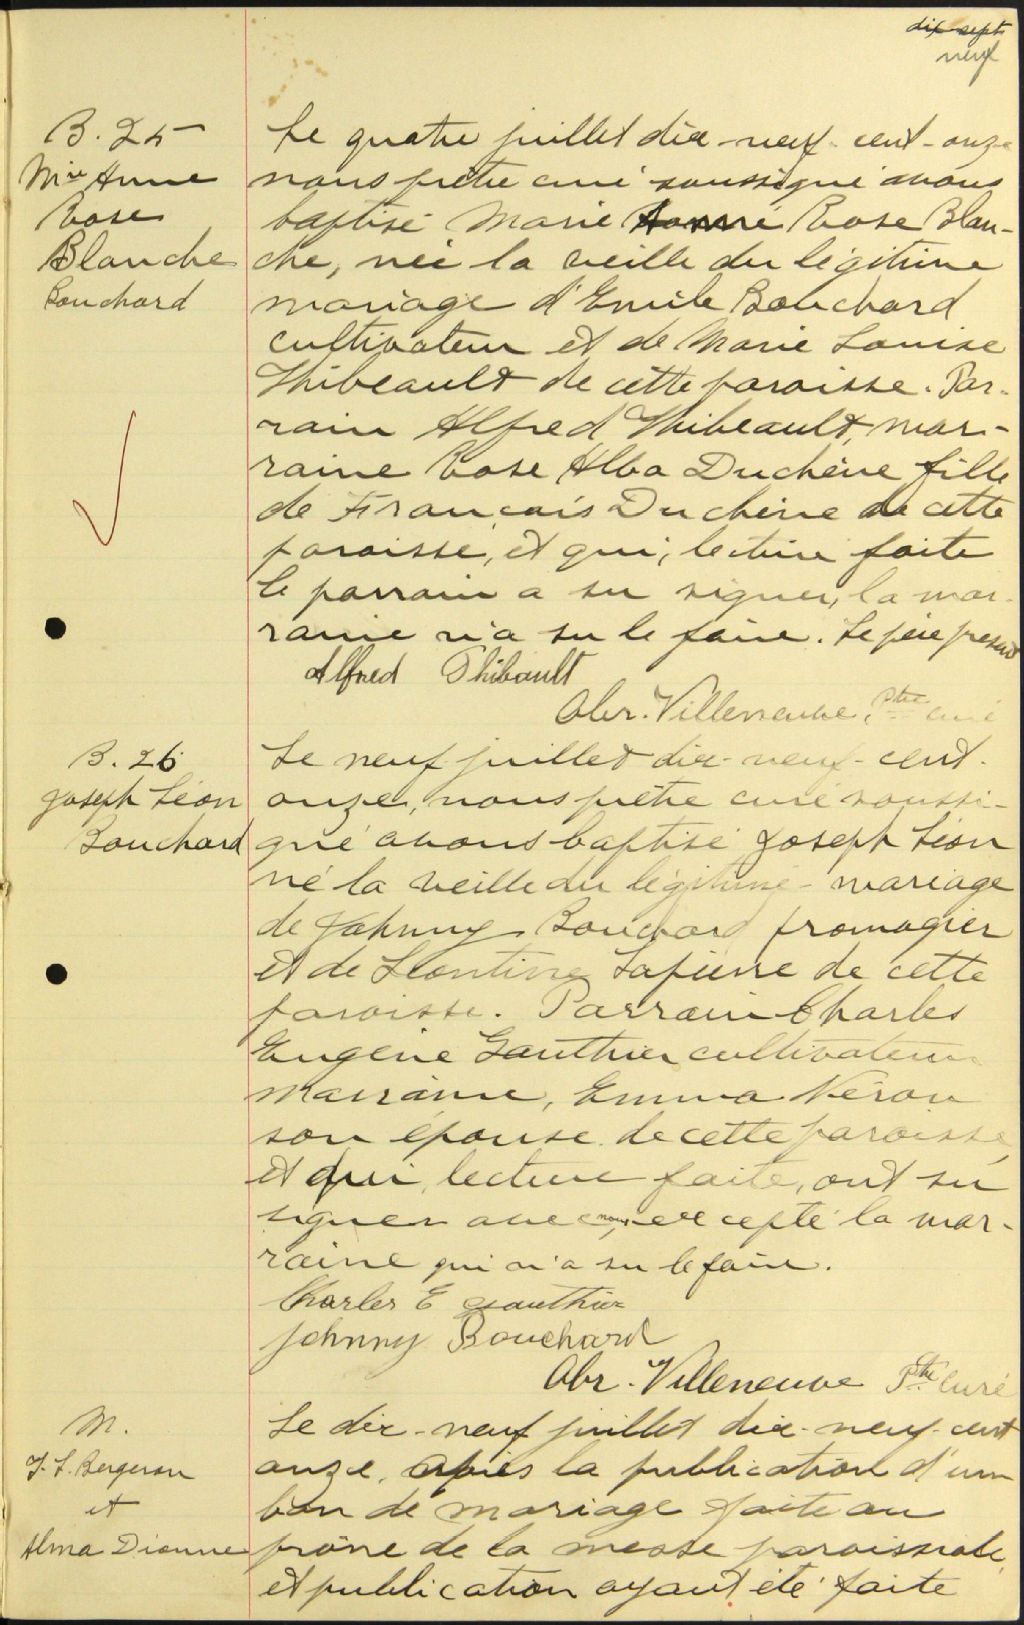 dix-sept
neuf
B. 25
Mie Anne
Rose
Blanche
Bouchard
Le quatre juillet dix-neuf-cent-onze
nous prêtre curé soussigné avons
baptisé Marie Anne Rose Blan-
che, née la veille du légitime
mariage d'Emile Bouchard
cultivateur et de Marie Louise
Thibeault de cette paroisse. Par-
rain Alfred Thibeault, mar-
raine Rose Alba Duchêne fille
de François Duchêne de cette
paroisse, et qui, lecture faite
le parrain a su signer, la mar-
raine n'a su le faire. Le père présent
Alfred Thibault
Abr. Villeneuve, Ptre curé
B. 26
Joseph Léon
Bouchard
Le neuf juillet dix-neuf-cent-
onze, nous prêtre curé soussi-
gné avons baptisé Joseph Léon
né la veille du légitime mariage
de Johnny Bouchard fromagier
et de Léontine Lapierre de cette
paroisse. Parrain Charles
Eugène Gauthier cultivateur
marraine, Emma Néron
son épouse de cette paroisse,
et qui, lecture faite, ont su
signer avec nous, excepté la mar-
raine qui n'a su le faire.
Charles E Gauthier
Johnny Bouchard
Abr. Villeneuve Ptre Curé
M.
J. L. Bergeron
et
Alma Dionne
Le dix-neuf juillet dix-neuf-cent
onze, après la publication d'un
ban de mariage faite au
prône de la messe paroissiale,
et publication ayant été faite